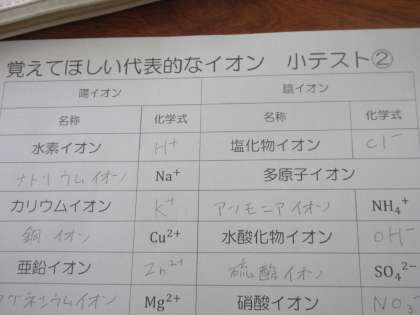 覚えてほしい代表的なイオン 小テスト②
陽イオン 陰イオン
名称 化学式 名称 化学式
水素イオン H⁺ 塩化物イオン Cl⁻
ナトリウムイオン Na⁺ 多原子イオン
カリウムイオン K⁺ アンモニアイオン NH₄⁺
銅イオン Cu²⁺ 水酸化物イオン OH⁻
亜鉛イオン Zn²⁺ 硫酸イオン SO₄²⁻
マグネシウムイオン Mg²⁺ 硝酸イオン NO₃⁻